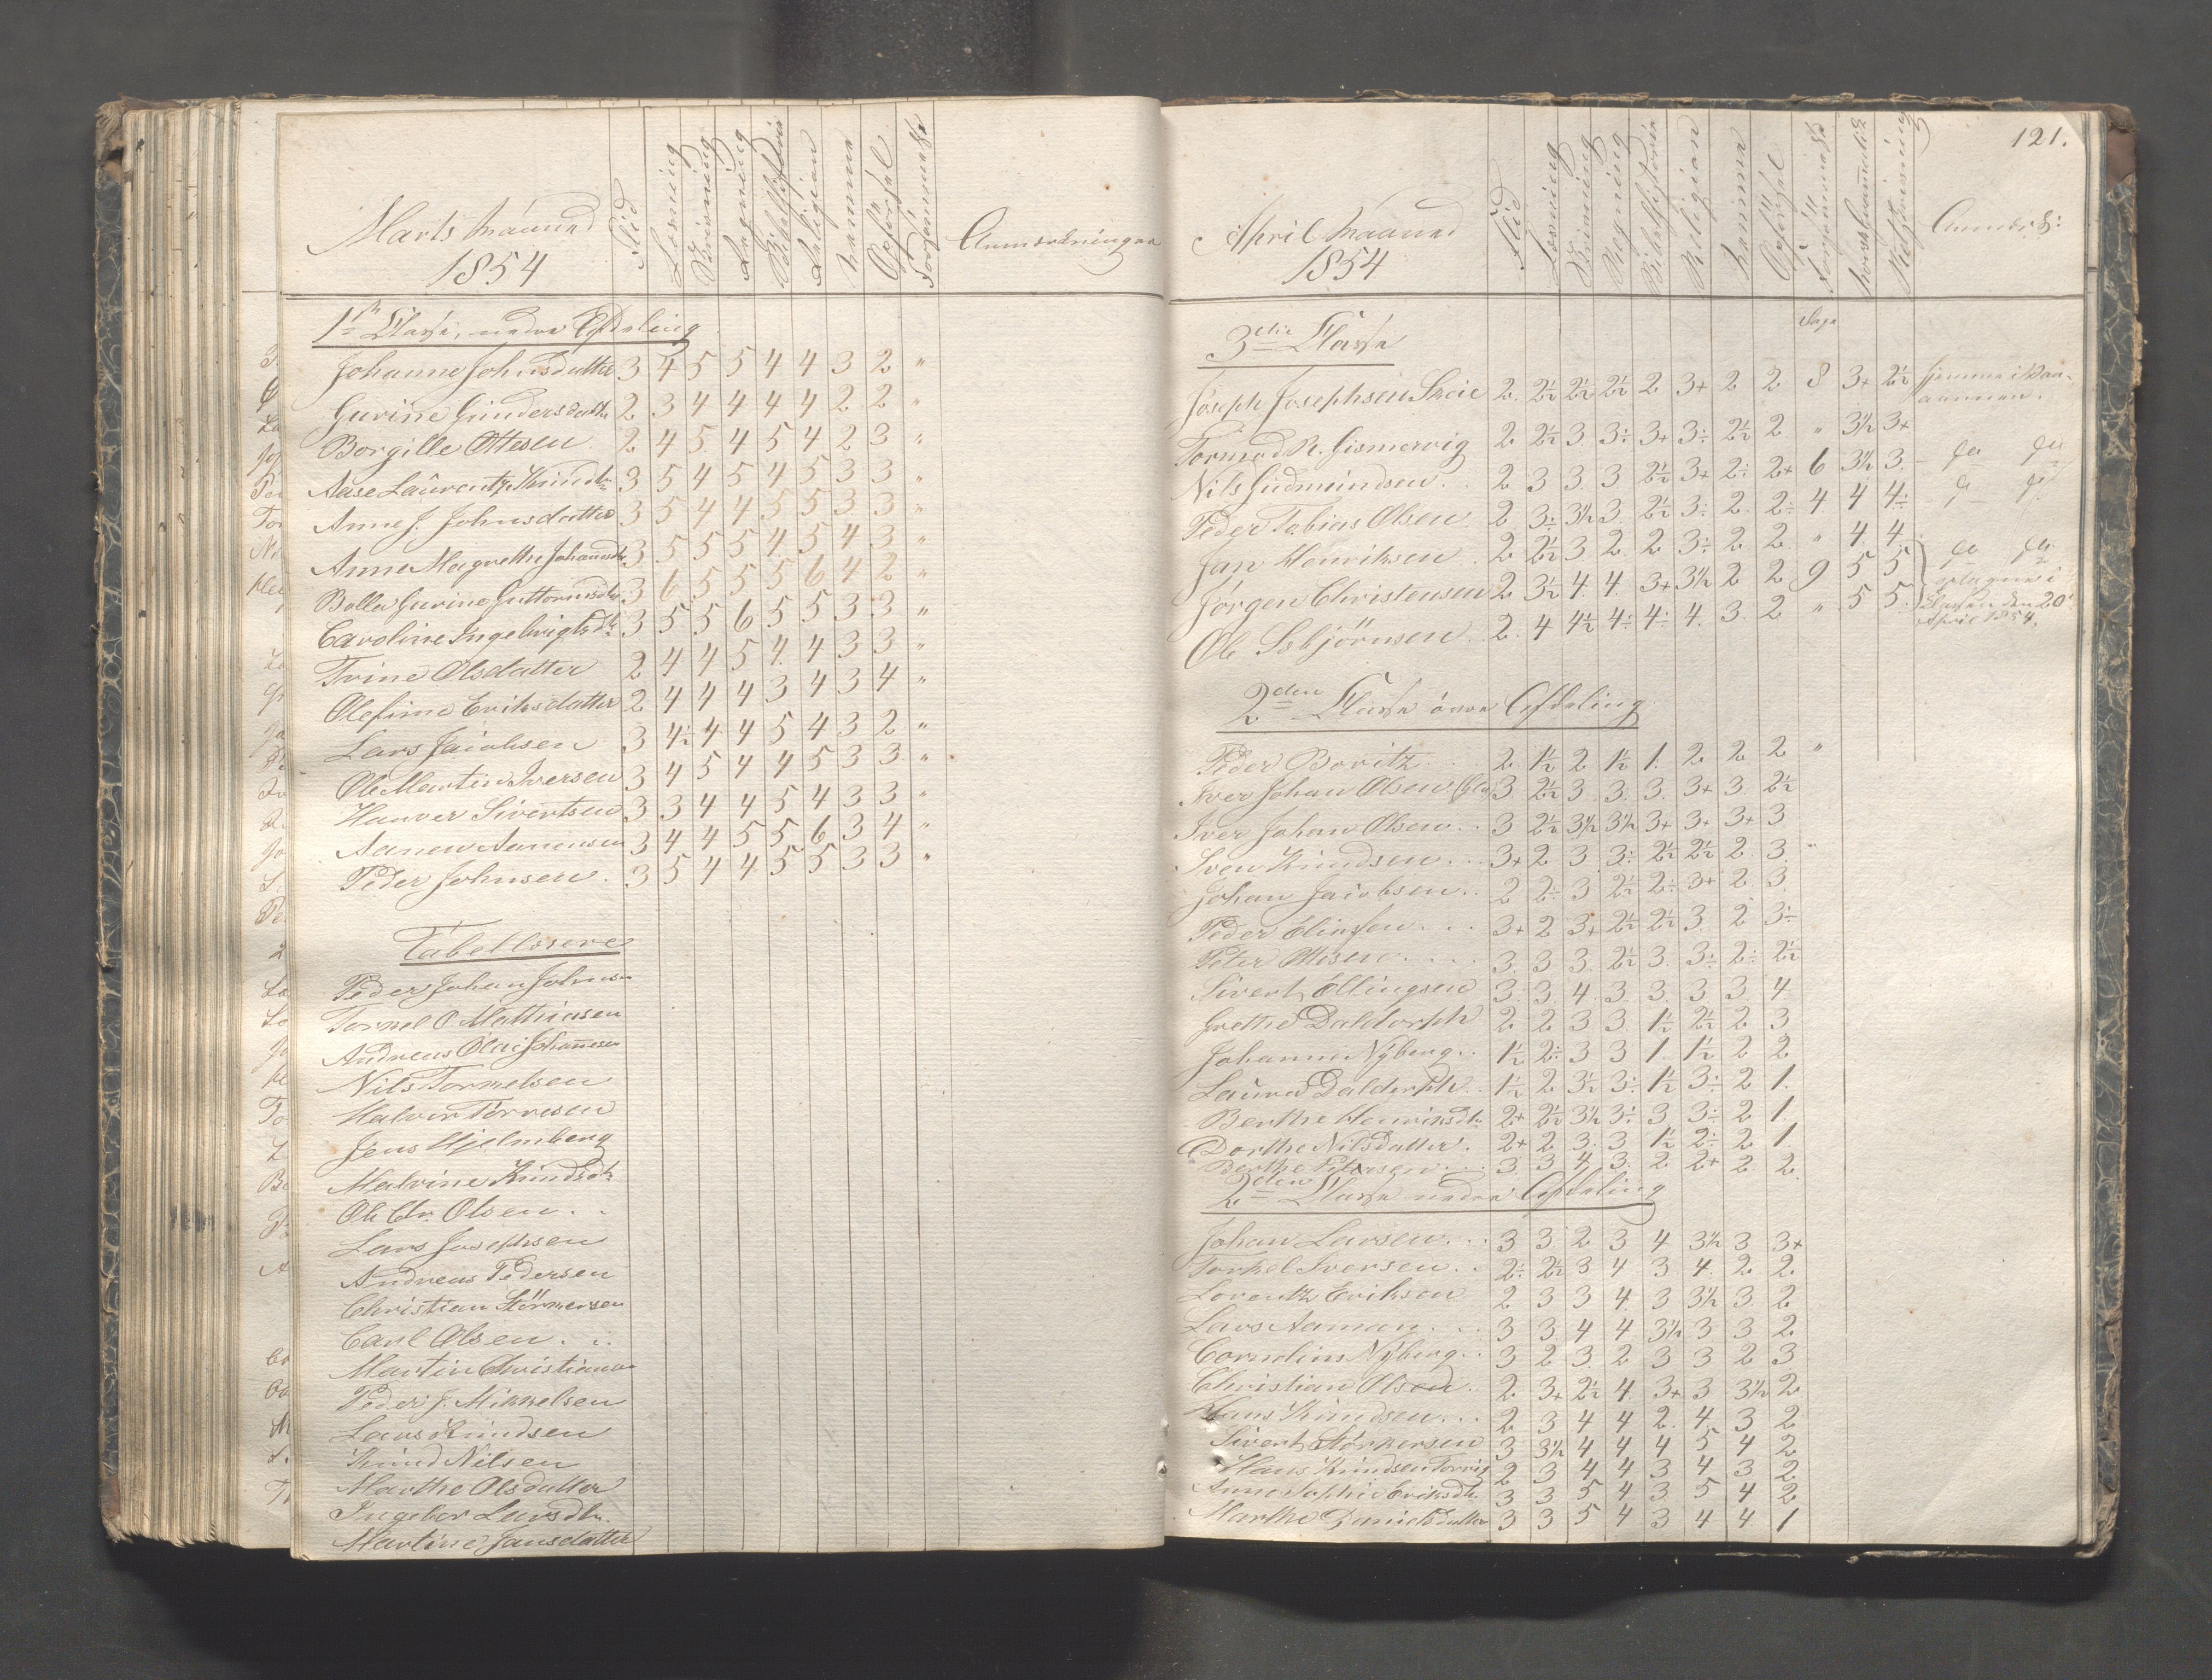 Marts Maaned
1854
Flid
Læsning
Skrivning
Regning
Bibelhistorie
Religion
Nemme
Opförsel
Forsømmelse
Anmærkninger
1ste Classe, nedre Afdeling
Johanne Johnsdatter 3 4 5 5 4 4 3 2 "
Gurine Gundersdatter 2 3 4 4 4 4 2 2 "
Borgille Ottesen 2 4 5 4 5 4 2 3 "
Aase Laurentze Knudsdtr 3 5 4 5 4 5 3 3 "
Anne J. Johnsdatter 3 5 4 4 5 5 3 3 "
Anne Magrethe Johannsdtr 3 5 5 5 4 5 4 3 "
Bolle Gurine Guttormsdtr 3 6 5 5 5 6 4 2 "
Caroline Ingebrigtsdtr 3 5 5 6 5 5 3 3 "
Trine Olsdatter 2 4 4 5 4 4 3 3 "
Olefine Eriksdatter 2 4 4 4 3 4 3 4 "
Lars Jacobsen 3 4½ 4 4 5 4 3 2 "
Ole Martin Iversen 3 4 5 4 4 5 3 3 "
Hanver Sivertsen 3 3 4 4 5 4 3 3 "
Aanen Aanensen 3 4 4 5 5 6 3 4 "
Peder Johnsen 3 5 4 4 5 5 3 3 "
Tabellæsere
Peder Johan Johnsen
Tormel O Mathiasen
Andreas Olai Johannesen
Nils Tormelsen
Halvor Tørresen
Jens Hjelmberg
Malvine Knudsdtr
Ole Chr. Olsen
Lars Josephsen
Andreas Pedersen
Christian Störkersen
Carl Olsen
Martin Christiansen
Peder J. Mikkelsen
Lars Knudsen
Knud Nilsen
Marthe Olsdatter
Ingebor Larsdtr.
Martine Jansdatter
121.
April Maaned
1854
Flid
Læsning
Skrivning
Regning
Bibelhistorie
Religion
Nemme
Opförsel
Forsømmelse
Retskrivning
Anmærk:
Dage
3die Classe
Joseph Josephsen Skeie 2 2½ 2½ 2½ 2 3+ 2 2 8 3+ 2½ hjemme i Vaa-
aannen.
Tormod R. Gismervig 2 2½ 3 3÷ 3+ 3÷ 2½ 2 " 3½ 3+
Nils Gudmundsen 2 3 3 3 2½ 3+ 2÷ 2+ 6 3½ 3
Peder Tobias Olsen 2 3÷ 3½ 3 2½ 3÷ 2 2÷ 4 4 4÷
Jan Henriksen 2 2½ 3 2 2 3÷ 2 2 " 4 4
Jörgen Christensen 2 3½ 4 4 3+ 3½ 2 2 9 5 5
Ole Isbjörnsen 2 4 4½ 4÷ 4÷ 4 3 2 " 5 5 Classen den 20
April 1854.
2den Classe övre Afdeling
Peder Boritz 2 1½ 2 1½ 1 2 2 2 "
Iver Johan Olsen 3 2½ 3 3 3 3+ 3 2½
Iver Johan Olsen 3 2½ 3½ 3½ 3+ 3+ 3+ 3
Sven Knudsen 3+ 2 3 3÷ 2½ 2½ 2 3 "
Johan Jacobsen 2 2÷ 3 2½ 2÷ 3+ 2 3
Peder Eliassen 3+ 2 3+ 2½ 2½ 3 2 3÷
Peter Olsen 3 3 3 2½ 3 3÷ 2÷ 2½
Sivert Ellingsen 3 3 4 3 3 3 3 4
Grethe Daldorph 2 2 3 3 1½ 2½ 2 3
Johanne Nÿberg 1½ 2÷ 3 3 1 1½ 2 2
Laura Daldorph 1½ 2 3½ 3÷ 1½ 3÷ 2 1
Berthe Henriksdtr 2+ 2½ 3½ 3÷ 3 3÷ 2 1
Dorthe Nilsdatter 2+ 2 3 3 1½ 2÷ 2 1
Berthe Petersen 3 3 4 3 2 2+ 2 2
2den Classe nedre Afdeling
Johan Larsen 3 3 2 3 4 3½ 3 3+
Torkel Iversen 2÷ 2½ 3 4 3 4 2 2
Lorentz Eriksen 2 3 3 4 3 3½ 3 2
Lars Aaman 3 3 4 4 3½ 3 3 2
Cornelius Nÿberg 3 2 3 2 3 3 2 3
Christian Olsen 2 3+ 2½ 4 3+ 3 3½ 2
Hans Knudsen 2 3 4 4 2 4 3 2
Sivert Störkersen 3 3½ 4 4 4 5 4 2
Hans Knudsen Torvig 2 3 4 4 3 4 3 2
Anne Sophie Eriksdtr 3 3 5 4 3 5 4 2
Marthe Danielsdatter 3 3 5 4 3 4 4 1